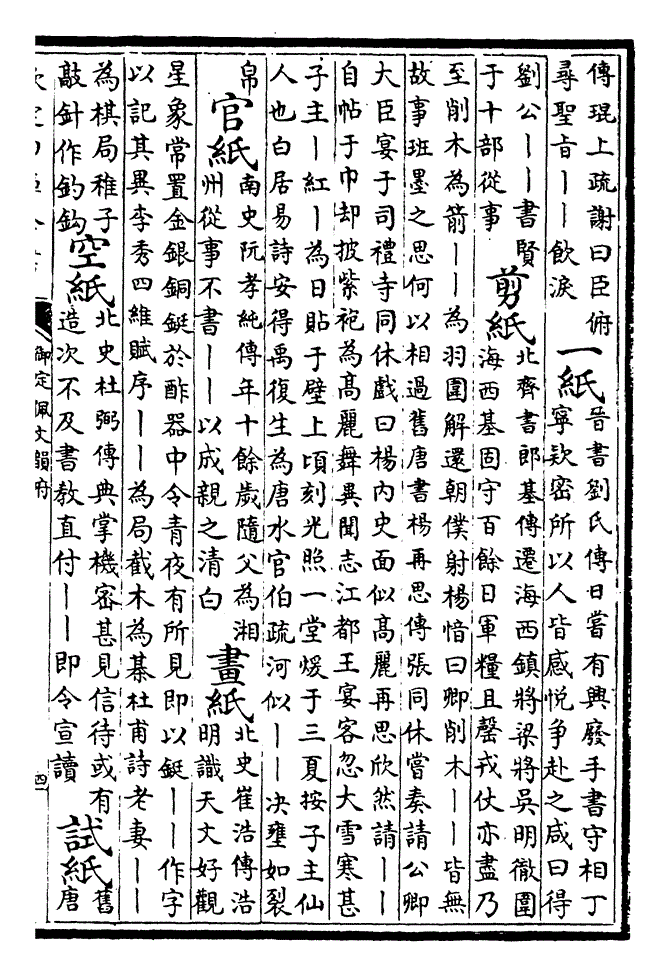 傳琨上疏謝曰臣俯
尋聖旨丨丨飲淚
一紙
晉書劉氏傳日嘗有興廢手書守相丁
寧欵密所以人皆感悅爭赴之咸曰得
劉公丨丨書賢
于十部從事
剪紙
北齊書郎基傳遷海西鎮將梁將吳明徹圍
海西基固守百餘日軍糧且罄戎仗亦盡乃
至削木為箭丨丨為羽圍解還朝僕射楊愔曰卿削木丨丨皆無
故事班墨之思何以相過舊唐書楊再思傳張同休嘗奏請公卿
大臣宴于司禮寺同休戲曰楊內史面似高麗再思欣然請丨丨
自帖于巾却披紫袍為高麗舞異聞志江都王宴客忽大雪寒甚
子主丨紅丨為日貼于壁上頃刻光照一堂煖于三夏按子主仙
人也白居易詩安得禹復生為唐水官伯疏河似丨丨決壅如裂
帛
官紙
南史阮孝純傳年十餘歲隨父為湘
州從事不書丨丨以成親之清白
畫紙
北史崔浩傳浩
明識天文好觀
星象常置金銀銅鋌於酢器中令青夜有所見即以鋌丨丨作字
以記其異李秀四維賦序丨丨為局截木為棊杜甫詩老妻丨丨
為棋局稚子
敲針作釣鈎
空紙
北史杜弼傳典掌機密甚見信待或有
造次不及書教直付丨丨即令宣讀
試紙
舊
唐
御定佩文韻府
四